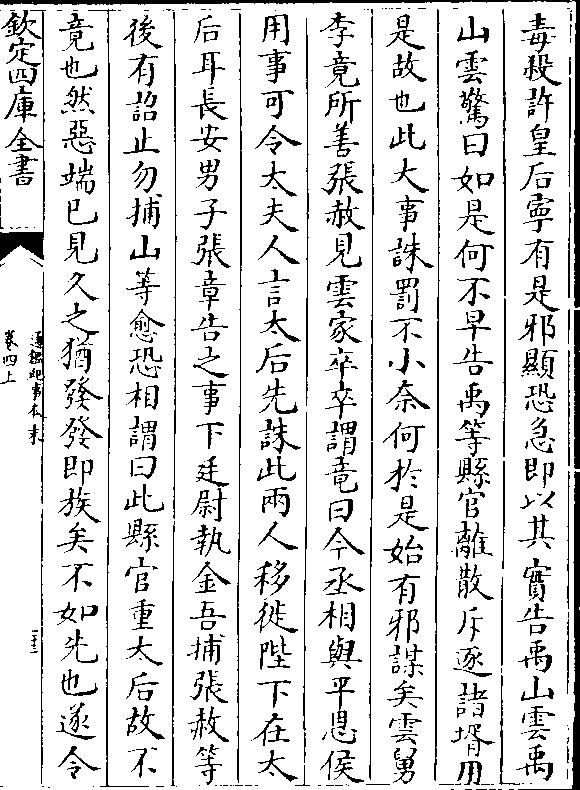 毒殺許皇后寧有是邪顯恐急即以其實告禹山雲禹
山雲驚曰如是何不早告禹等縣官離散斥逐諸壻用
是故也此大事誅罰不小奈何於是始有邪謀矣雲舅
李竟所善張赦見雲家卒卒謂竟曰今丞相與平恩侯
用事可令太夫人言太后先誅此兩人移徙陛下在太
后耳長安男子張章告之事下廷尉執金吾捕張赦等
後有詔止勿捕山等愈恐相謂曰此縣官重太后故不
竟也然惡端已見久之猶發發即族矣不如先也遂令
欽定四庫全書
通鑑紀事本末
卷四上